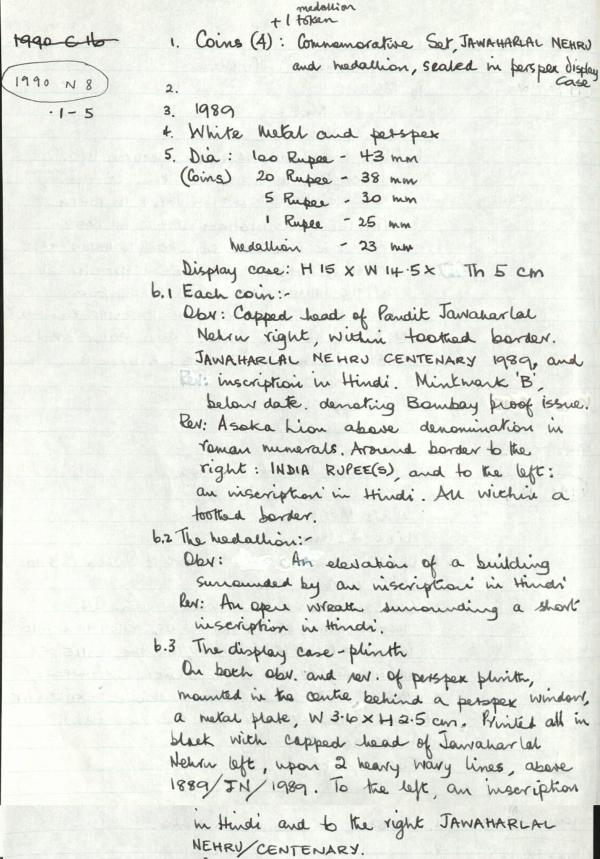 medallion
+ 1 token
1990 C 16
1. Coins (4) : Commemorative Set, JAWAHARLAL NEHRU
and medallion, sealed in perspex display
Case
1990 N 8
.1-5
2.
3. 1989
4. White Metal and perspex
5. Dia : 100 Rupee - 43 mm
(Coins) 20 Rupee - 38 mm
5 Rupee - 30 mm
1 Rupee - 25 mm
Medallion - 23 mm
Display case: H 15 X W 14.5 X Th 5 cm
6.1 Each coin:-
Obv: Capped head of Pandit Jawaharlal
Nehru right, within toothed border.
JAWAHARLAL NEHRU CENTENARY 1989, and
Rev: inscription in Hindi. Mintmark 'B',
below date. denoting Bombay proof issue.
Rev: Asoka Lion above denomination in
roman numerals. Around border to the
right : INDIA RUPEE(S), and to the left:
an inscription in Hindi. All within a
toothed border.
6.2 The medallion:-
Obv: An elevation of a building
surrounded by an inscription in Hindi
Rev: An open wreath surrounding a short
inscription in Hindi.
6.3 The display case-plinth
On both obv. and rev. of perspex plinth,
mounted in the centre, behind a perspex window,
a metal plate, W 3.6 X H 2.5 cm. Printed all in
black with capped head of Jawaharlal
Nehru left, upon 2 heavy wavy lines, above
1889/JN/1989. To the left, an inscription
in Hindi and to the right JAWAHARLAL
NEHRU/CENTENARY.